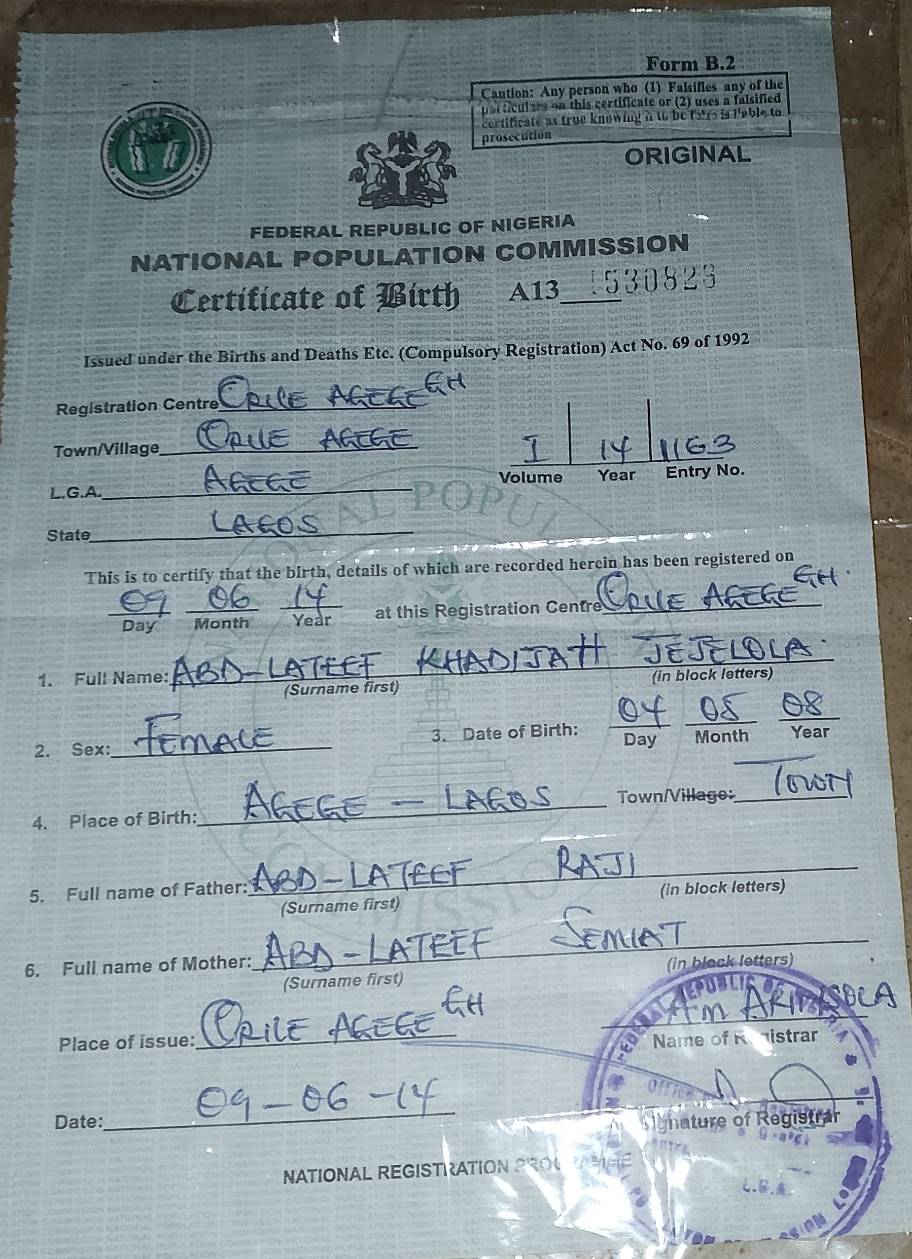 Form B.2
Caution: Any person who (1) Falsifies any of the
particulars on this certificate or (2) uses a falsified
certificate as true knowing it to be false is liable to
prosecution
ORIGINAL
FEDERAL REPUBLIC OF NIGERIA
NATIONAL POPULATION COMMISSION
Certificate of Birth A13 1530823
Issued under the Births and Deaths Etc. (Compulsory Registration) Act No. 69 of 1992
Registration Centre ORILE AGEGE GH
Town/Village ORILE AGEGE
I 14 1163
Volume Year Entry No.
L.G.A. AGEGE
State LAGOS
This is to certify that the birth, details of which are recorded herein has been registered on
09 06 14 at this Registration Centre ORILE AGEGE GH
Day Month Year
1. Full Name: ABD-LATEEF KHADIJAH JEJELOLA
(Surname first) (in block letters)
2. Sex: FEMALE 3. Date of Birth: 04 05 08
Day Month Year
4. Place of Birth: AGEGE - LAGOS Town/Village: TOWN
5. Full name of Father: ABD-LATEEF RAJI
(Surname first) (in block letters)
6. Full name of Mother: ABD-LATEEF SEMIAT
(Surname first) (in block letters)
Place of issue: ORILE AGEGE GH
Name of Registrar
Date: 09-06-14
Signature of Registrar
NATIONAL REGISTRATION PROGRAMME
L.G.A.